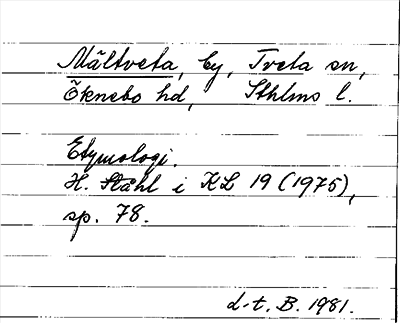 Mältveta, by, Tveta sn,
Öknebo hd, Sthlms l.
Etymologi.
H. Ståhl i KL 19 (1975),
sp. 78.
d-t. B. 1981.